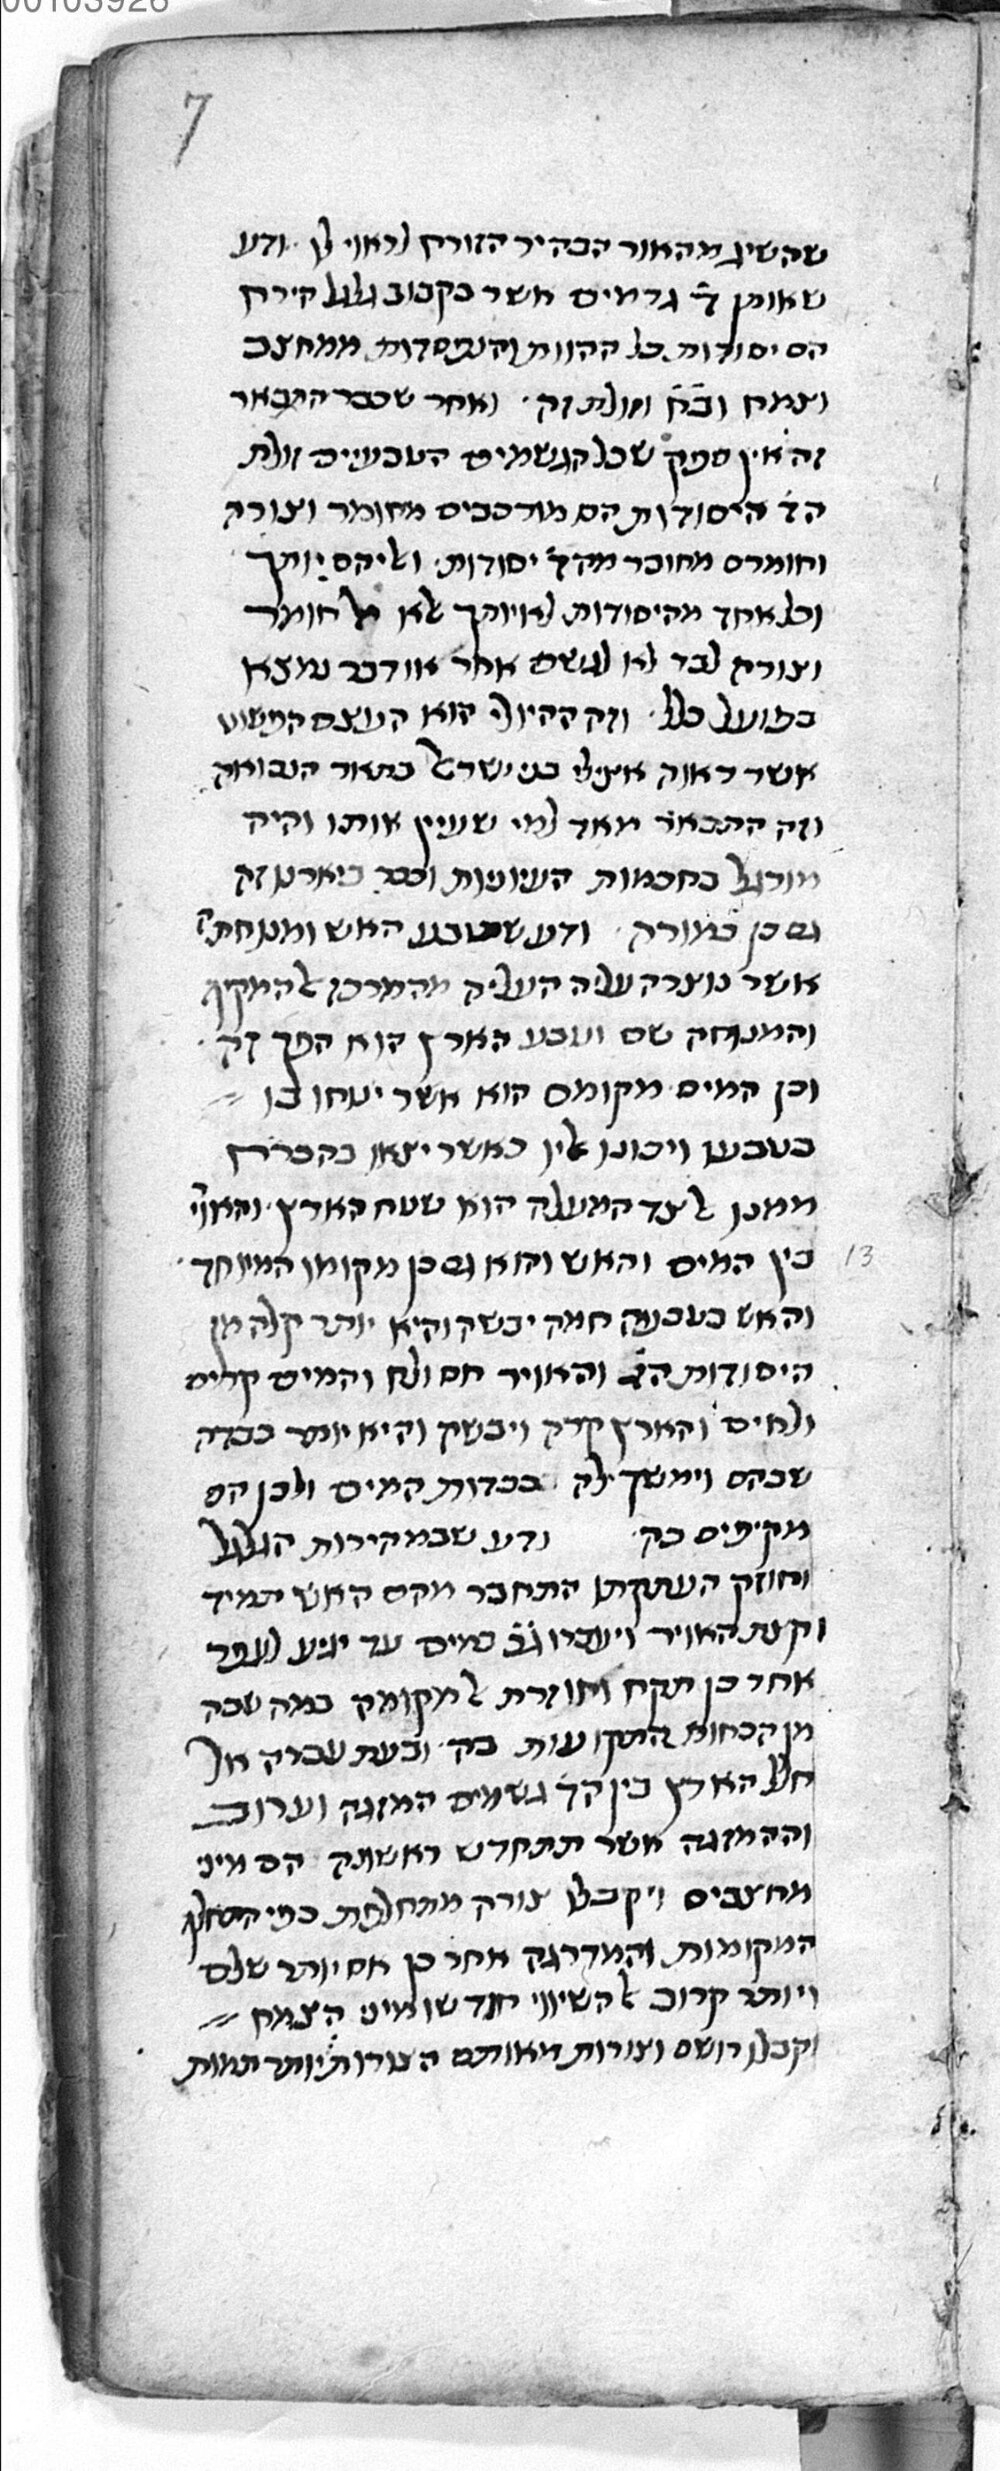 00103926
7
שהשיג מהאור הבהיר הזורח לראוי לו . ודע
שאותן ד' גרמים אשר בקבוב גלגל הירח
הם יסודות כל ההוות והנפסדות ממחצב
וצמח וב"ח וזולת זה . ואחר שכבר התבאר
זה אין ספק שכל הגשמים הטבעיים זולת
הד' היסודות הם מורכבים מחומר וצורה
וחומרם מחובר מהד' יסודות . ואליהם יותך
וכל אחד מהיסודות לא יותך אלא אל חומר
וצורה לבד לא לגשם אחר או דבר נמצא
בפועל כלל . וזה ההיולי הוא העצם הפשוט
אשר ראוה אצילי בני ישראל בתאר הנבואה
וזה התבאר מאד למי שעיין אותו והיה
מורגל בחכמות העיוניות וכבר ביארנו זה
גם כן במורה . ודע שטבע האש ומנוחתה
אשר נוצרה עליה העליה מהמרכז להמקיף
והמנוחה שם וטבע הארץ הוא הפך זה .
וכן המים מקומם הוא אשר ינוחו בו
בטבעו ויכונו אליו כאשר יצאו בהכרח
ממנו לצד המעלה הוא שטח הארץ . והאויר
בין המים והאש והוא גם כן מקומו המיוחד .
13
והאש בטבעה חמה יבשה והיא יותר קלה מן
היסודות הד' והאויר חם ולח והמים קרים
ולחים והארץ קרה ויבשה והיא יותר כבדה
שבהם וימשך לה בכבדות המים ולכן הם
מקיפים בה . ודע שבמהירות הגלגל
וחוזק העתקתו התחבר מהם האש תמיד
וקצת האויר ויעברו ג"כ במים עד יגיע לעפר
אחר כן תקח וחוזרת למקומה במה שבה
מן הכחות התקועות בה . ובעת עברה אל
חלל הארץ בין הד' גשמים המזגה וערוב
וההמזגה אשר תתחדש ראשונה הם מיני
מחצבים ויקבלו צורה מתחלפת כפי התחלף
המקומות והמדרגה אחר כן אם יותר שלם
ויותר קרוב להשיווי חודשו מיני הצמח
וקבלו רושם וצורות מאותם הצורות יותר תמות